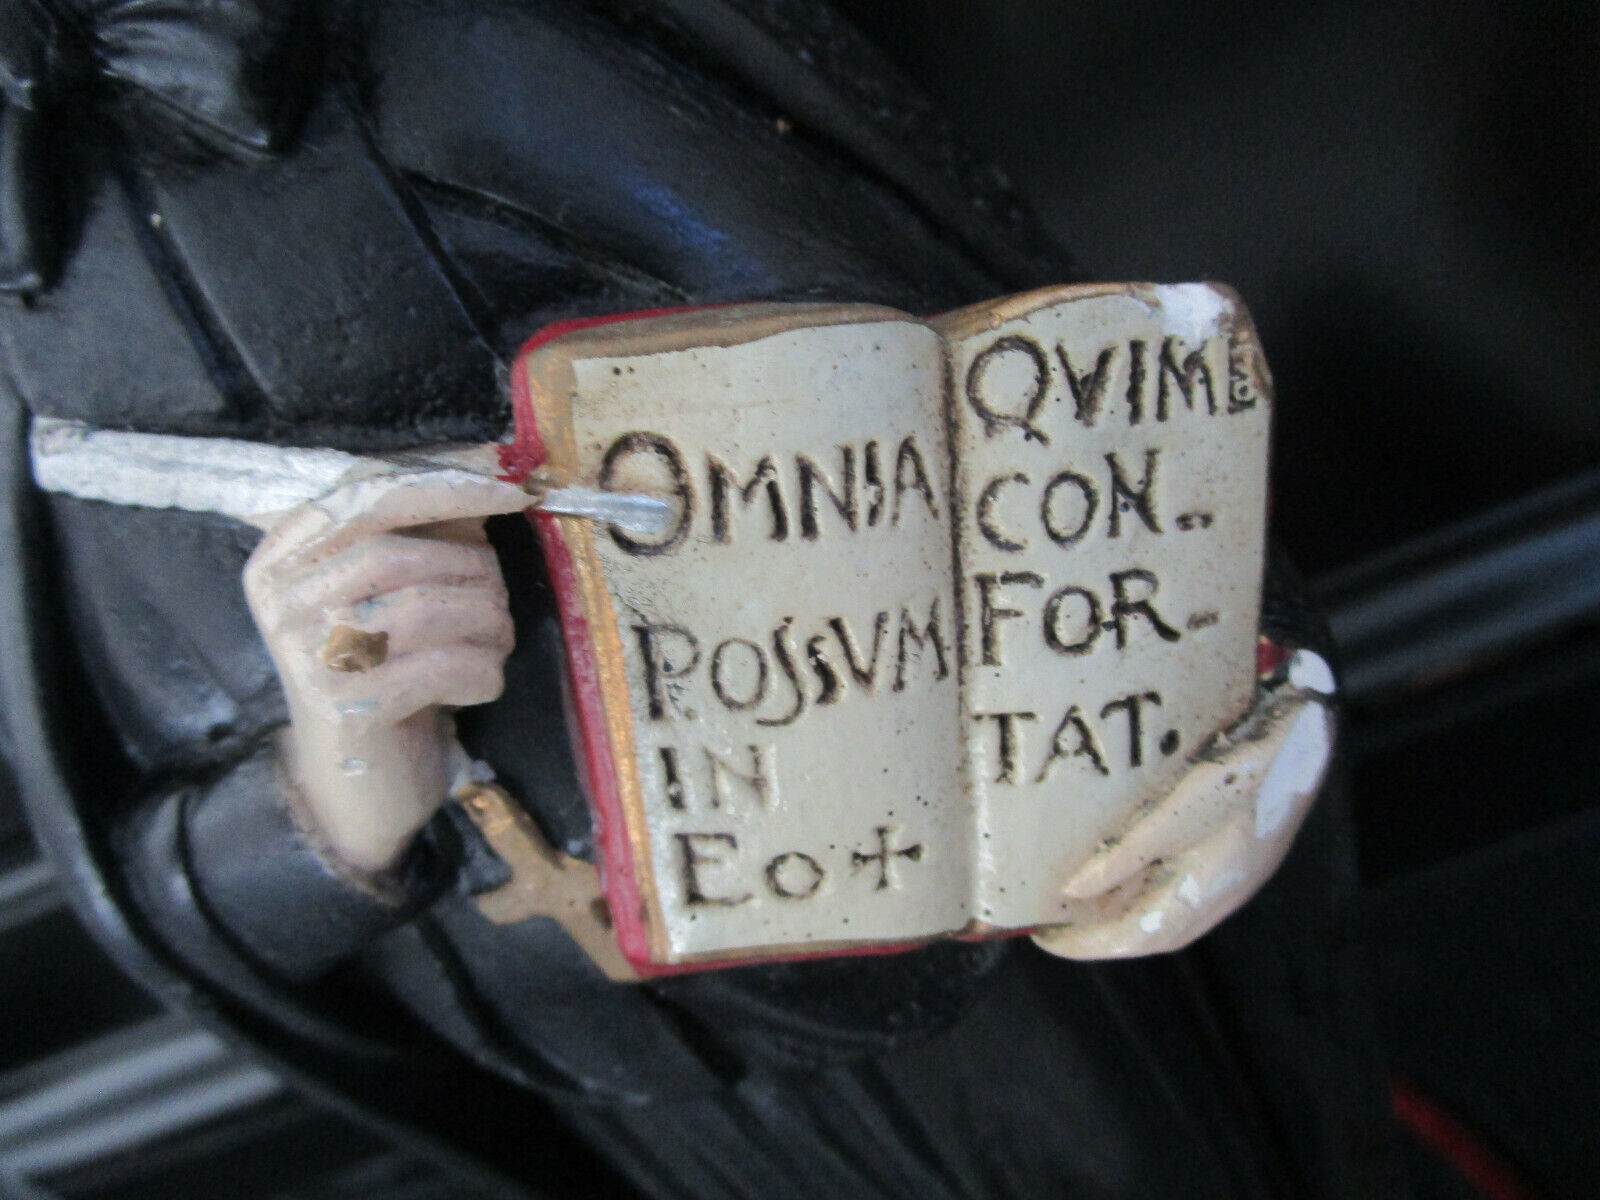 OMNIA
POSSVM
IN
EO +
QVIME
CON-
FOR-
TAT.